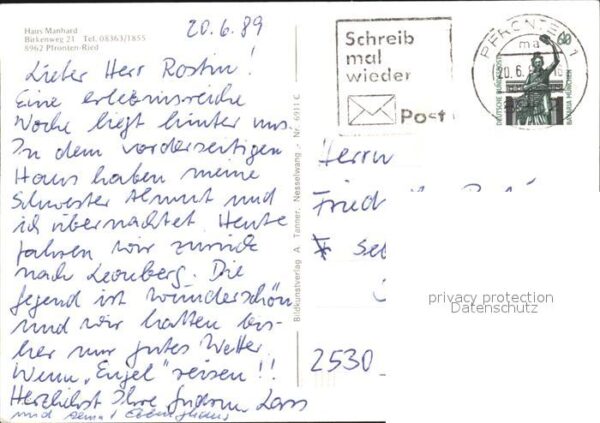 Haus Manhard
Birkenweg 21 Tel. 08363/1855
8962 Pfronten-Ried
20.6.89
Lieber Herr Rostin!
Eine erlebnisreiche
Woche liegt hinter uns.
In dem vorderseitigen
Haus haben meine
Schwester Almut und
ich übernachtet. Heute
fahren wir zurück
nach Leonberg. Die
Gegend ist wunderschön
und wir hatten bis-
her nur gutes Wetter.
Wenn "Engel" reisen!!
Herzlichst Ihre Gudrun
und
Bildkunstverlag A. Tanner, Nesselwang - Nr. 6911 C
Schreib
mal
wieder
Post
PFRONTEN 1
ma
20.6.8
60
DEUTSCHE BUNDESPOST
BAVARIA MÜNCHEN
Herrn
Fried
2530
privacy protection
Datenschutz